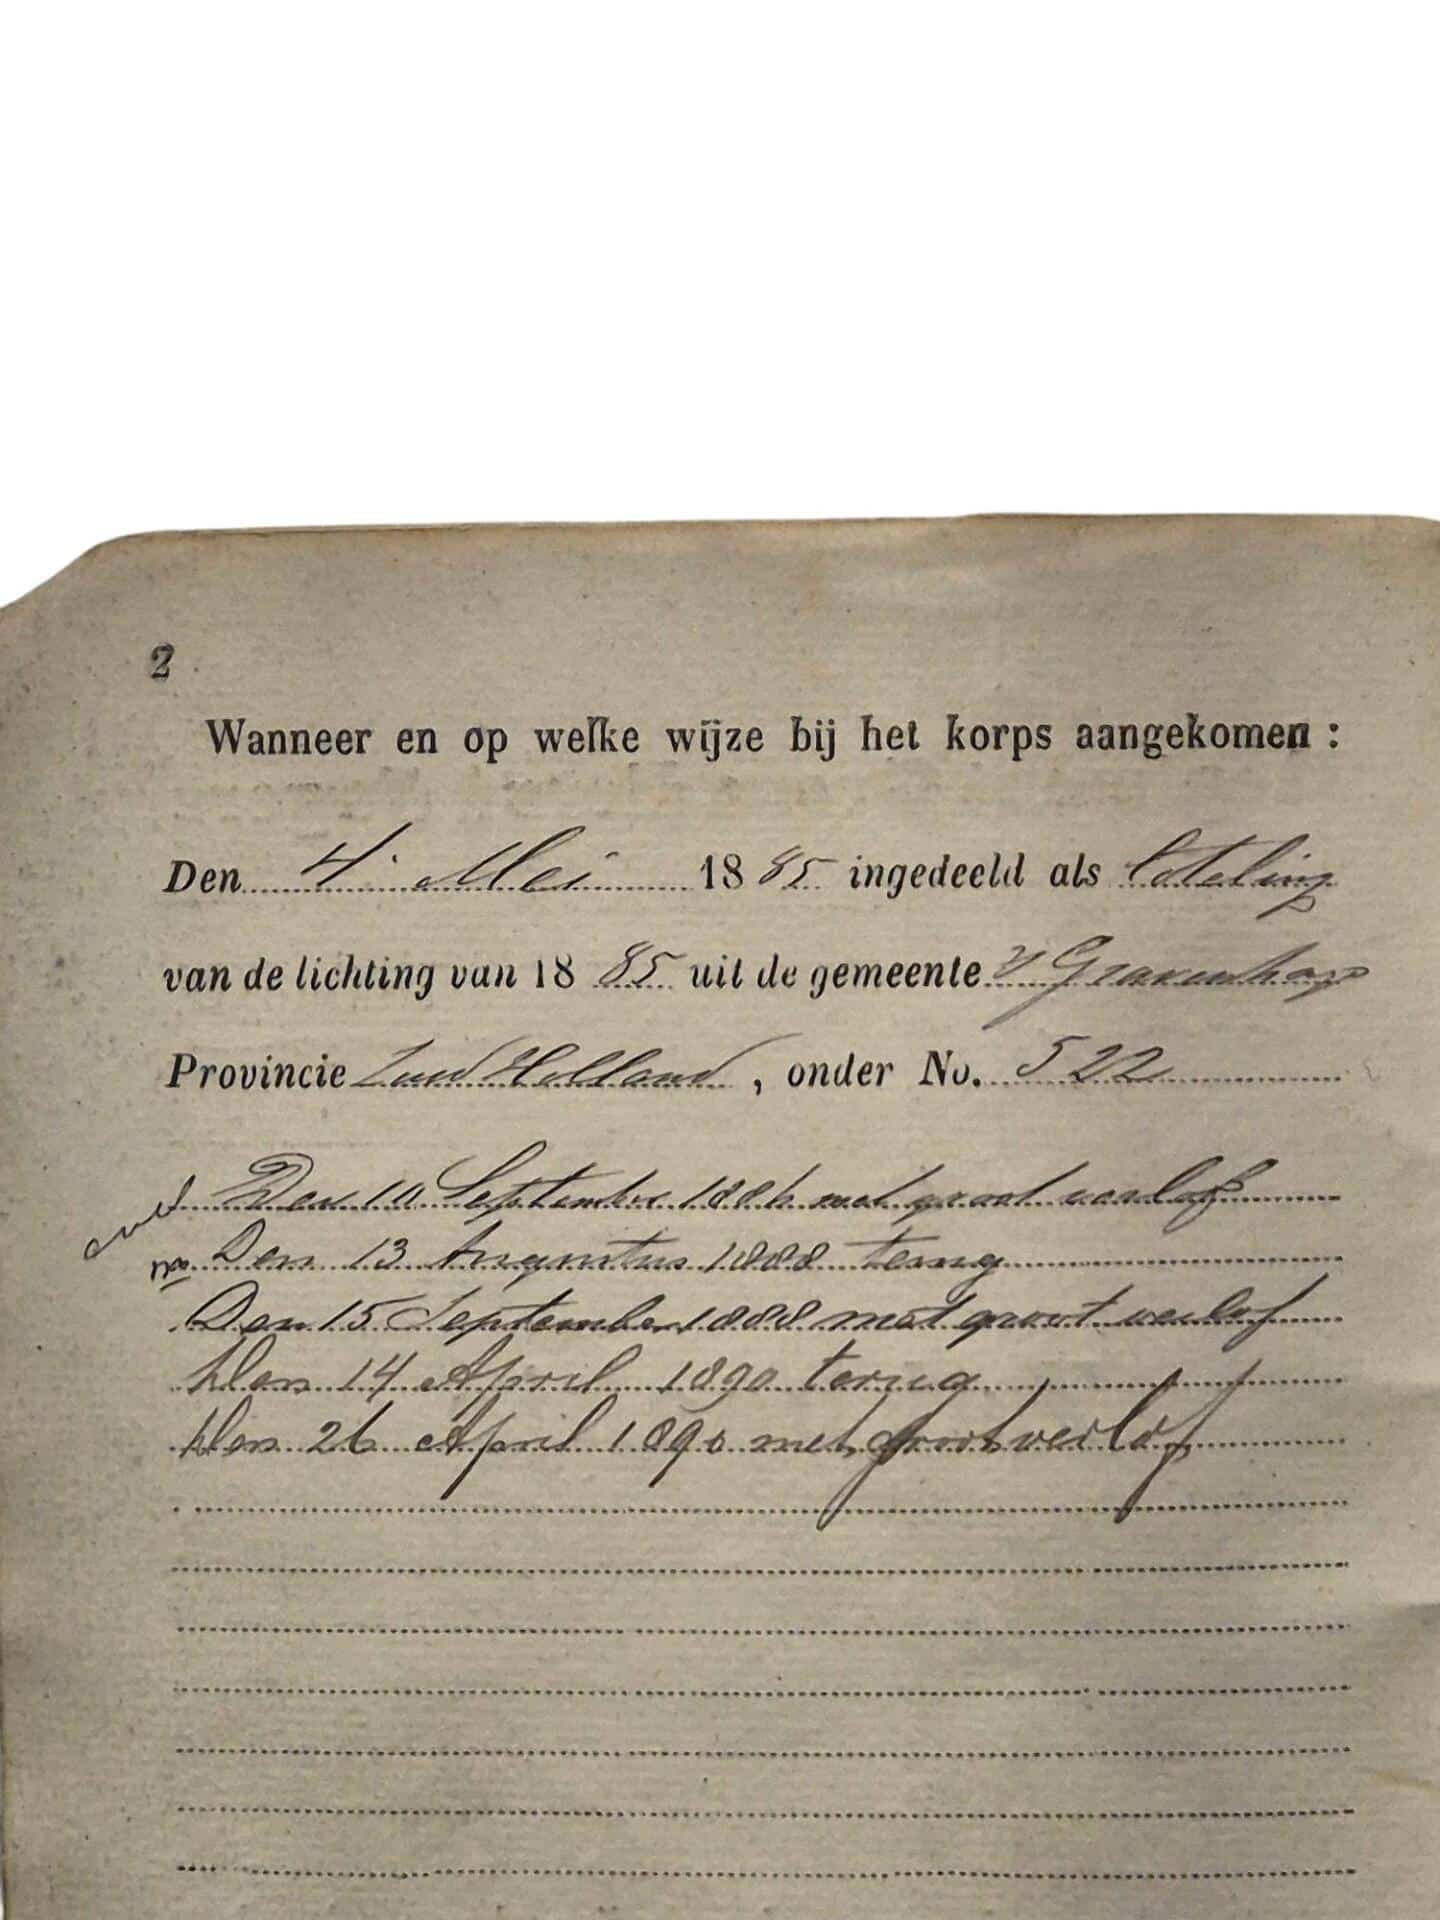 2
Wanneer en op welke wijze bij het korps aangekomen :
Den 4 Mei 1885 ingedeeld als loteling
van de lichting van 1885 uit de gemeente 's Gravenhage
Provincie Zuid Holland, onder No. 522
Den 10 September 1886 met groot verlof
Den 13 Augustus 1888 terug
Den 15 September 1888 met groot verlof
Den 14 April 1890 terug
Den 26 April 1890 met groot verlof